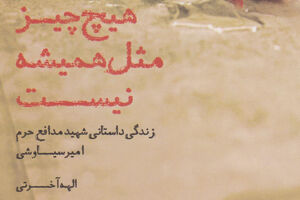 هیچ چیز
مثل همیشه
نیست
زندگی داستانی شهید مدافع حرم
امیر سیاوشی
الهه آخرتی